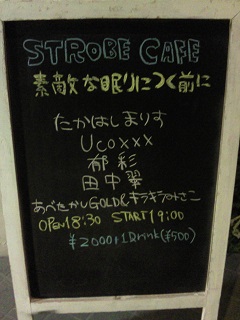 STROBE CAFE
素敵な眠りにつく前に
たかはしまりす
Ucoxxx
郁彩
田中翠
あべたかしGOLD&キラキラ
OPEN18:30 START19:00
¥2000+1Drink(¥500)